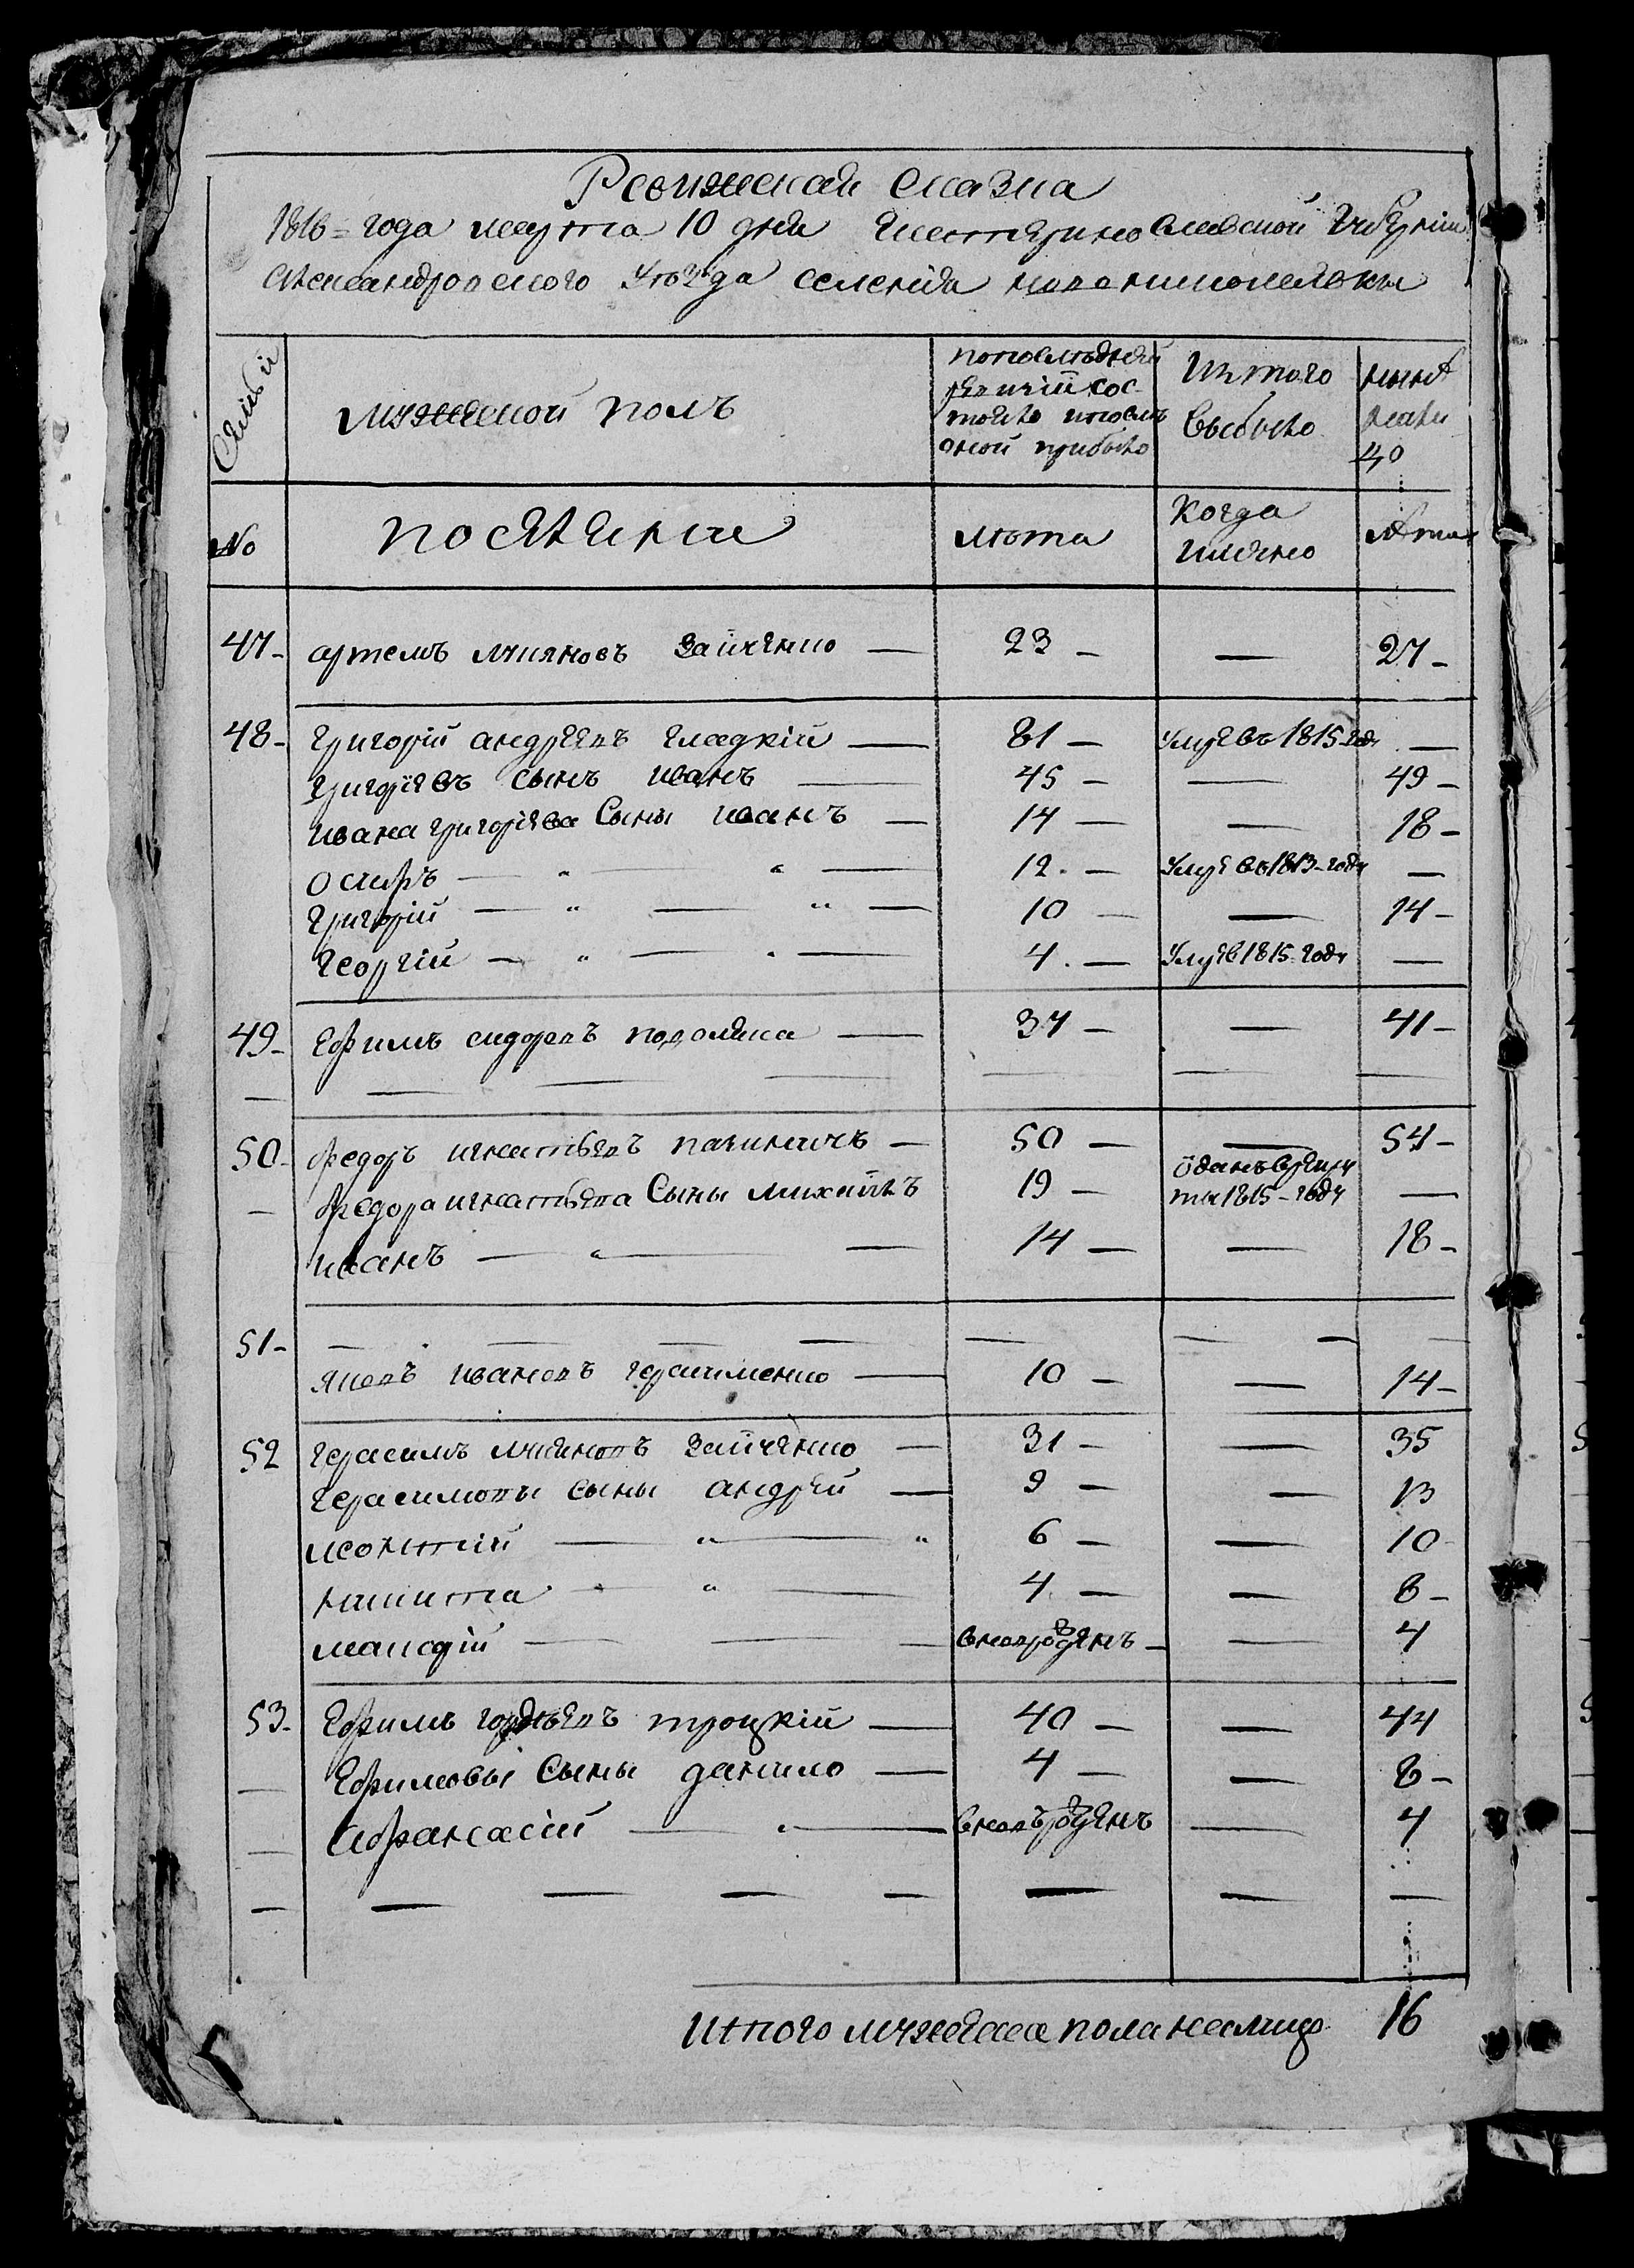 Ревижская сказка
1816 = года марта 10 дня Екатеринославской Губерніи
Александровского Уезда селенія новониколаевки
Семьи
мужеской полъ
попоследней ревизіи состояло ипосле оной прибыло
Изтого выбыло
ныне налицо
No
поселяни
лета
Когда имянно
лета
47- артемъ лукяновъ Зайченко — 23 - — 27-
48- григорій андреевъ гладкій — 81 - умре въ 1815-году —
григорѣевъ сынъ иванъ — 45 - — 49 -
ивана григорѣева Сыны иванъ — 14 — — 18 -
осифъ — " — " — 12. - Умре въ 1813-году —
григорій — " — " — 10 - — 14 -
георгій — " — " — 4. — Умре в 1815 году —
49- Ефимъ сидоровъ подоляка — 37 - — 41 -
— — — — — — —
50- федоръ игнатьевъ — 50 - — 54 -
— федора игнатьева Сыны михайлъ 19 - Одан в рекруты 1815-году —
иванъ — " — 14 — — 18 -
51- — — — — — — — —
яковъ ивановъ герасименко — 10 - — 14 -
52 герасимъ лукяновъ зайченко — 31 - — 35
герасимовы сыны андрей — 9 - — 13
леонтій — " — " 6 - — 10
никита " " — 4. — — 8 -
макарій — — — вновърожденъ - — 4
53- Ефимъ гордѣевъ троцкій — 40 - — 44
— Ефимовы Сыны данило — 4 - — 8 -
— Афанасій — " — вновърожденъ — 4
— — — — — — — —
Итого мужеска пола налицо 16